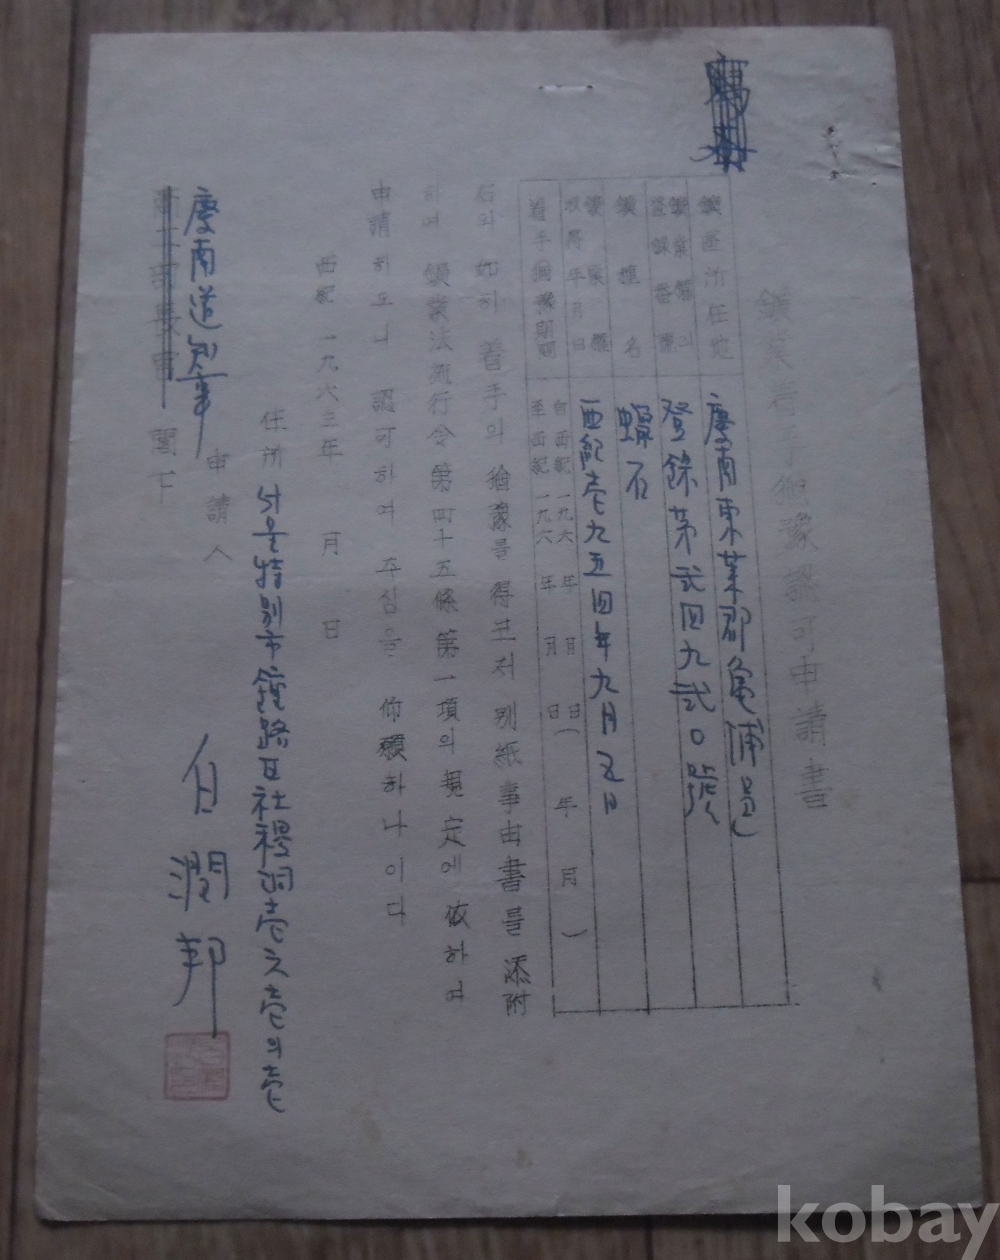 鑛業着手猶豫認可申請書
鑛產所在地
慶南東萊郡龜浦邑
鑛業權의
登錄番號
登錄第弐四九弐〇號
鑛種名
蠟石
鑛業權
取得年月日
西紀壱九五四年九月五日
着手猶豫期間
自西紀一九六 年 月 日
至西紀一九六 年 月 日 ( 年 月 )
右와 如히 着手의 猶豫를 得코저 別紙事由書를 添附
하여 鑛業法施行令第四十五條第一項의 規定에 依하여
申請하오니 認可하여 주심을 仰願하나이다
西紀一九六三年 月 日
住所 서울特別市鐘路区社稷洞壱之壱의壱
申請人 白潤邦
慶南道知事
商工部長官 閣下
kobay